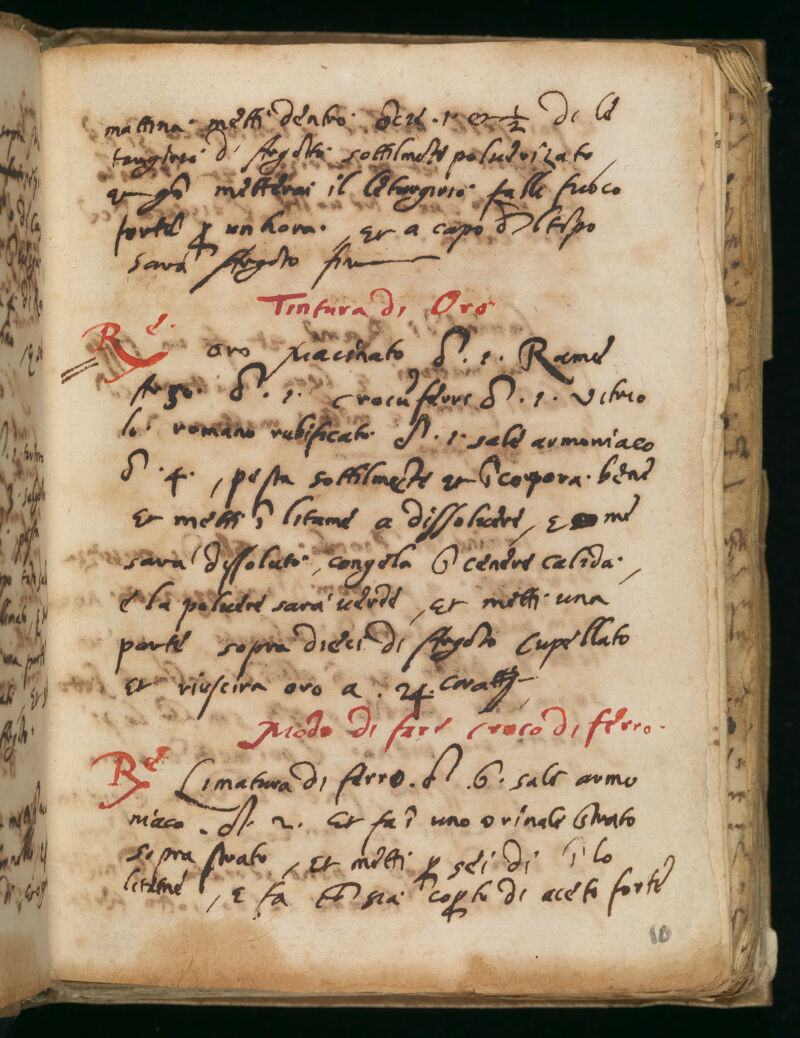 mattina metti dentro oncie .1. et ½ di le
targirio di Argẽto sottilmẽte poluerizato,
et qñ metterai il leturgirio falli fuoco
forte ꝑ un hora, et a capo dl tẽpo
sara Argẽto fin
Tintura di Oro
Re. oro Macinato .1. Rame
.1. crocũ ferri .1. vitrio
lo romano rubificato .1. sale armoniaco
.4., pesta sottilmẽte et ĩcorpora bene
et metti ĩ litame a dissoluere, e me
sara dissoluto, congela ĩ cenere calida,
e la poluere sara uerde, et metti una
parte sopra dieci di Argẽto cupellato
et riuscira oro a .24. caratti
Modo di fare croco di ferro.
Re Limatura di ferro .6. sale armo
niaco .2. et fa ĩ uno orinale strato
sopra strato, et metti ꝑ sei di ĩ lo
litame, e fa sia coꝑto di aceto forte
10